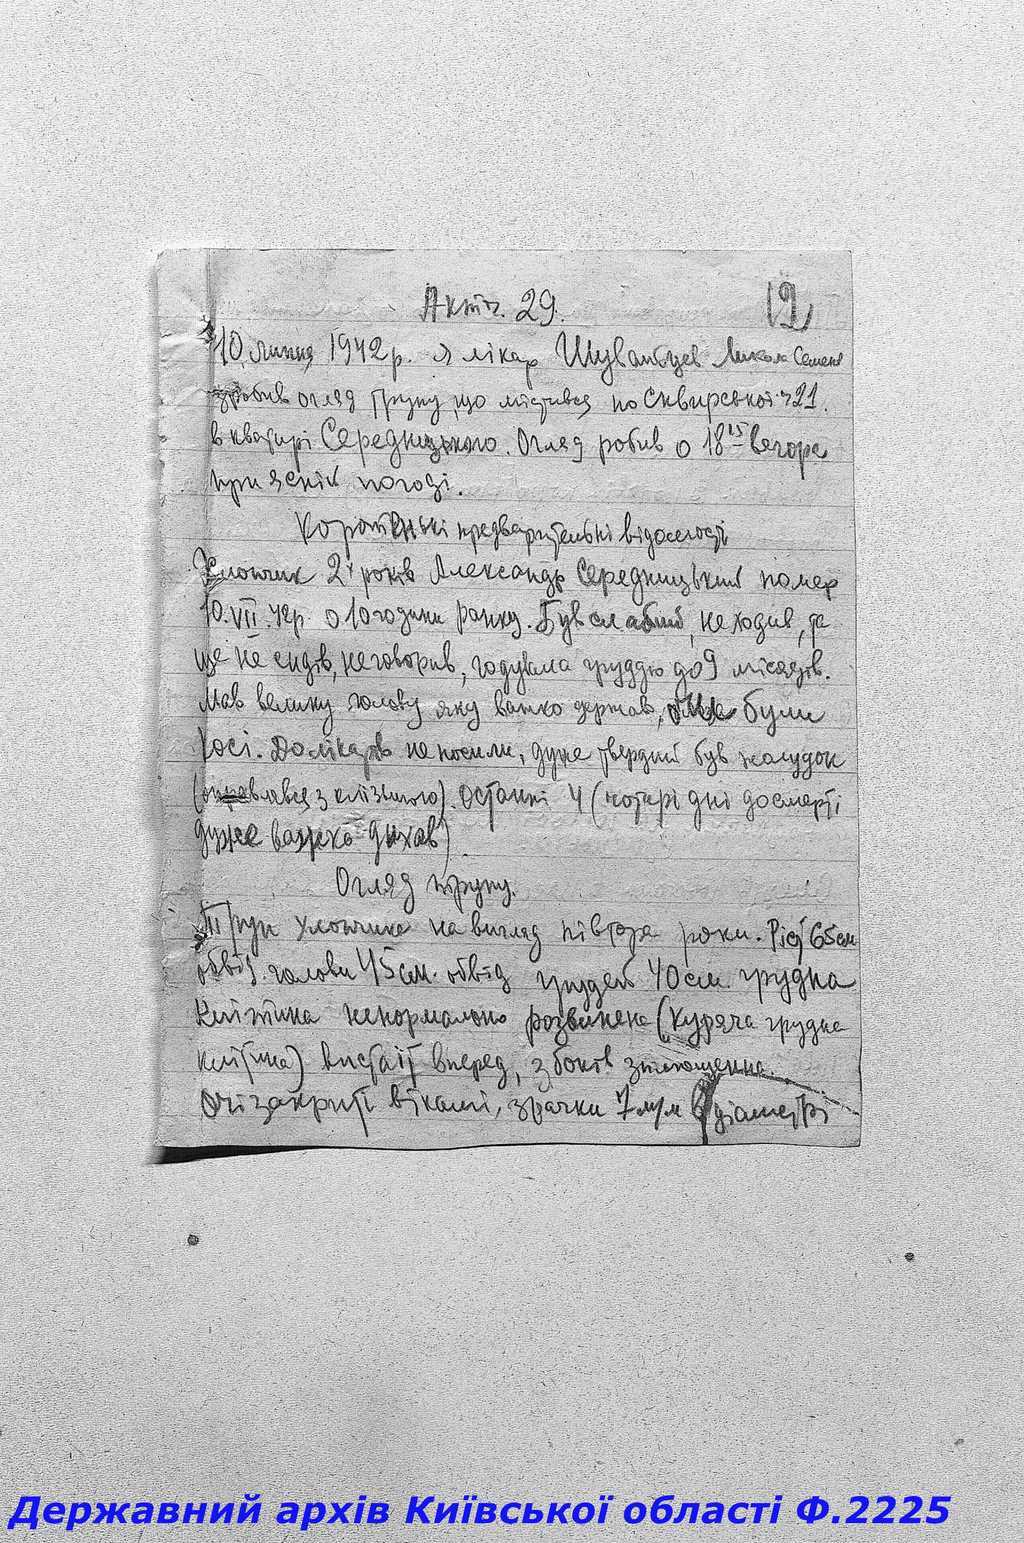 Акт ч. 29.
12
10 липня 1942 р. я лікар Шувамбцев Микола Семен
зробив огляд трупу, що містився по Сквирській ч 21.
в квартирі Середницького. Огляд робив о 18 15 вечора
при ясній погоді.
Коротенькі предварительні відомості
Хлопчик 2х років Александр Середницький помер
10.VII.42р. о 10 години ранку. Був слабий, не ходив, да
ще не сидів, не говорив, годувала груддю до 9 місяців.
Мав велику голову яку важко держав, були
косі. До лікарів не носили, дуже твердий був жолудок
(оправлявся з клізмою). Останні 4 (чотирі дні до смерті
дуже важко дихав)
Огляд трупу.
Труп хлопчика на вигляд півтора роки. Ріст 65 см
обвід голови 45 см. обвід грудей 40 см. грудна
клітина ненормально розвинена (куряча грудна
клітина) вистаїть вперед, з боків зплющенна.
Очі закриті віками, зрачки 7 м/м в діаметрі
Державний архів Київської області Ф.2225